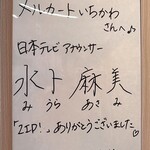 メルカートいちかわ
さんへ♪
日本テレビ アナウンサー
水卜 麻美
みうら あさみ
「ZIP!」、ありがとうございました♡